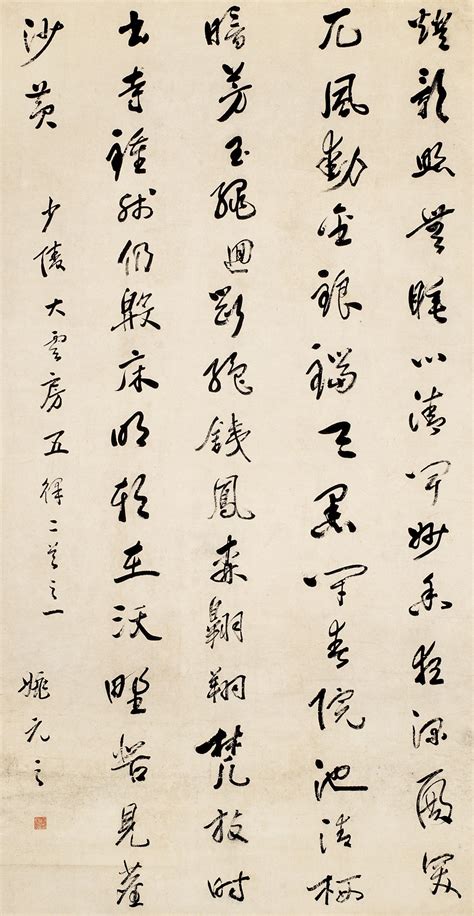 燈影照無睡心清聞妙香夜深殿突
兀風動金鋃鐺天黑閉春院池清栖
暗芳玉繩迴斷絕鐵鳳森翱翔梵放時
出寺鐘殘仍殷床明朝在沃野苦見塵
沙黃
少陵大雲房五律二首之一
姚元之